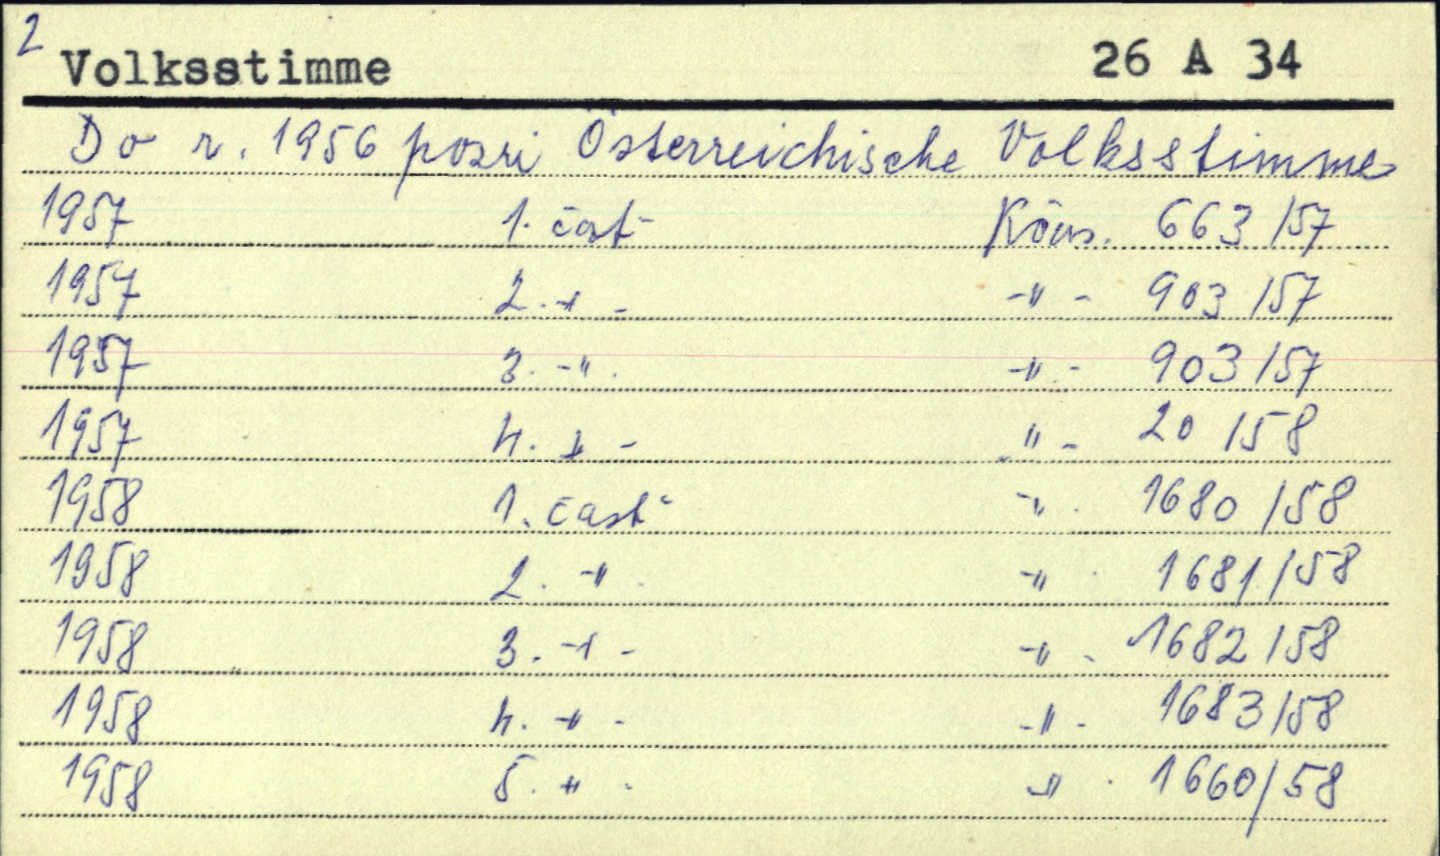 2
Volksstimme 26 A 34
Do r. 1956 pozri Österreichische Volksstimme
1957 1. časť Kčus. 663/57
1957 2. -"- -"- 903/57
1957 3. -"- -"- 903/57
1957 4. -"- -"- 20/58
1958 1. časť -"- 1680/58
1958 2. -"- -"- 1681/58
1958 3. -"- -"- 1682/58
1958 4. -"- -"- 1683/58
1958 5. -"- -"- 1660/58